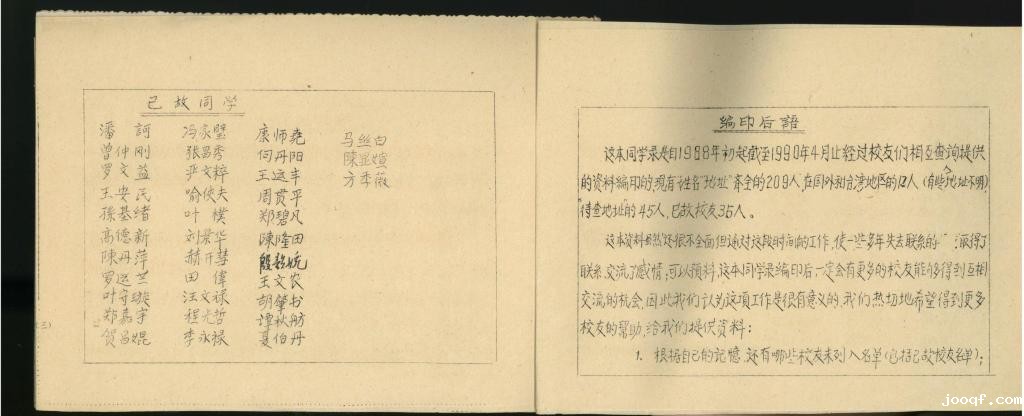 已故同学
潘 訶 冯家堅 康师尧 马丝白
曾仲刚 张昌秀 何丹阳 陳显煊
罗文益 尹文粹 王远丰 方季薇
王安民 喻俠夫 周贯平
孫基緒 叶樸 郑碧凡
高德新 刘荣华 陳隆田
陳丹萍 赫开慧
罗远兰 田偉 王文农
叶守璇 汪文禄 胡肇书
郑嘉宇 程光哲 譚秋舫
贺昌焜 李永禄 聂伯丹
編印后語
这本同学录是自1988年初起截至1990年4月止经过校友们相互查询提供
的资料编印的,现有“姓名”“地址”齐全的209人,在国外和台湾地区的12人(有些个地址不明)
“待查地址”的45人,已故校友35人。
这本资料虽然还很不全面但该对这段时间的工作,使一些多年失去联系的 取得了
联系,交流了感情,可以预料,这本同学录编印后一定会有更多的校友能夠得到互相
交流的机会,因此我们认为这项工作是很有意义的,我们热切地希望得到更多
校友的幫助,给我们提供资料:
1. 根据自己的記憶,还有哪些校友未列入名单(包括已故校友名单);
(三)
jooqf.com